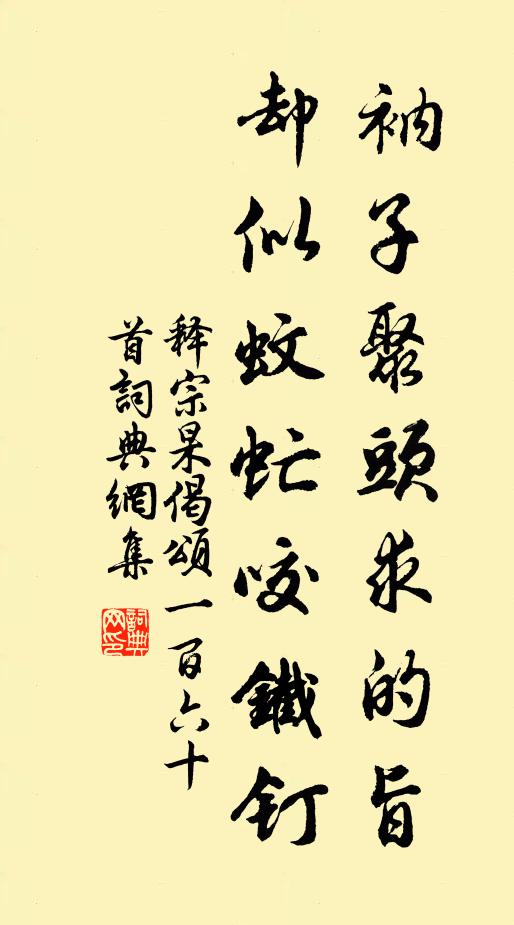 衲子聚頭求的旨
却似蚊虻咬鐵釘
释宗杲偈頌一百六十
首詞典網集
詞典
网印